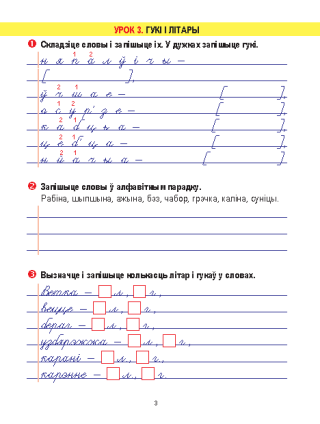 УРОК 3. ГУКІ І ЛІТАРЫ
1 Складзіце словы і запішыце іх. У дужках запішыце гукі.
1 2
н я п а л ў і ч ы –
[ ],
2 1
ў ч ш а е – [ ],
1 2
[ ],
2 1
[ ],
2 1
[ ],
2 1
н й а ч ы а – [ ].
2 Запішыце словы ў алфавітным парадку.
Рабіна, шыпшына, ажына, бэз, чабор, грэчка, каліна, суніцы.
3 Вызначце і запішыце колькасць літар і гукаў у словах.
Ветка – л., г.,
вецце – л., г.,
бераг – л., г.,
узбярэжжа – л., г.,
карані – л., г.,
карэнне – л., г.
3